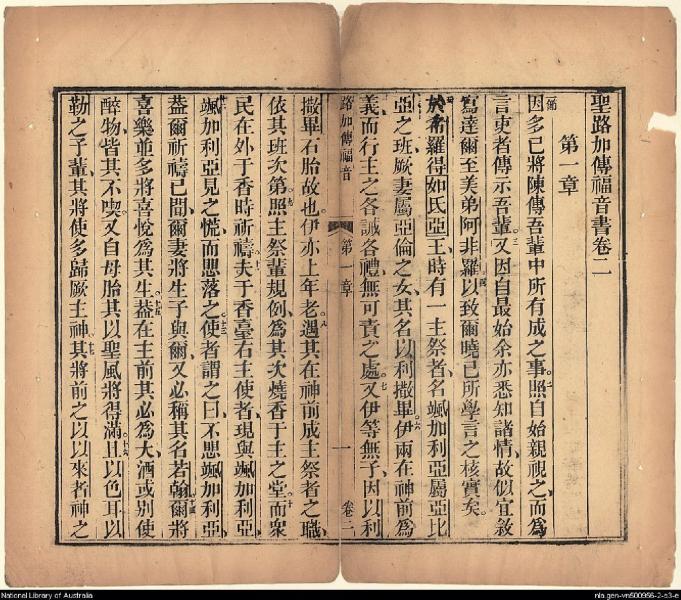 聖路加傳福音書卷二
第一章
因多已將陳傳吾輩中所有成之事。二照自始親視之、而爲
言吏者傳示吾輩。三又因自最始余亦悉知諸情、故似宜敘
寫達爾至美弟阿非羅。四以致爾曉已所學言之核實矣。
於希羅得如氏亞王、時有一主祭者、名颯加利亞屬亞比
亞之班、厥妻屬亞倫之女、其名以利撒畢。六伊兩在神前爲
義、而行主之各誡各禮、無可責之處。七又伊等無子、因以利
路加傳福音 第一章 一 卷二
撒畢石胎故也。伊亦上年老。八遇其在神前成主祭者之職、
依其班次第。九照主祭輩規例、爲其次燒香于主之堂。十而衆
民在外于香時祈禱。十一夫于香臺右主使者、現與颯加利亞、
颯加利亞見之慌、而悲落之。十三使者謂之曰、不悲颯加利亞、
葢爾祈禱已聞、爾妻將生子與爾、又必稱其名若翰。爾將
喜樂並多將喜悅爲其生。十五葢在主前其必爲大、酒或別使
醉物、皆其不喫。又自母胎其以聖風將得滿。十六且以色耳以
勒之子輩、其將使多歸厥主神。十七其將前之以以來者神之
National Library of Australia
nla.gen-vn500956-2-s3-e